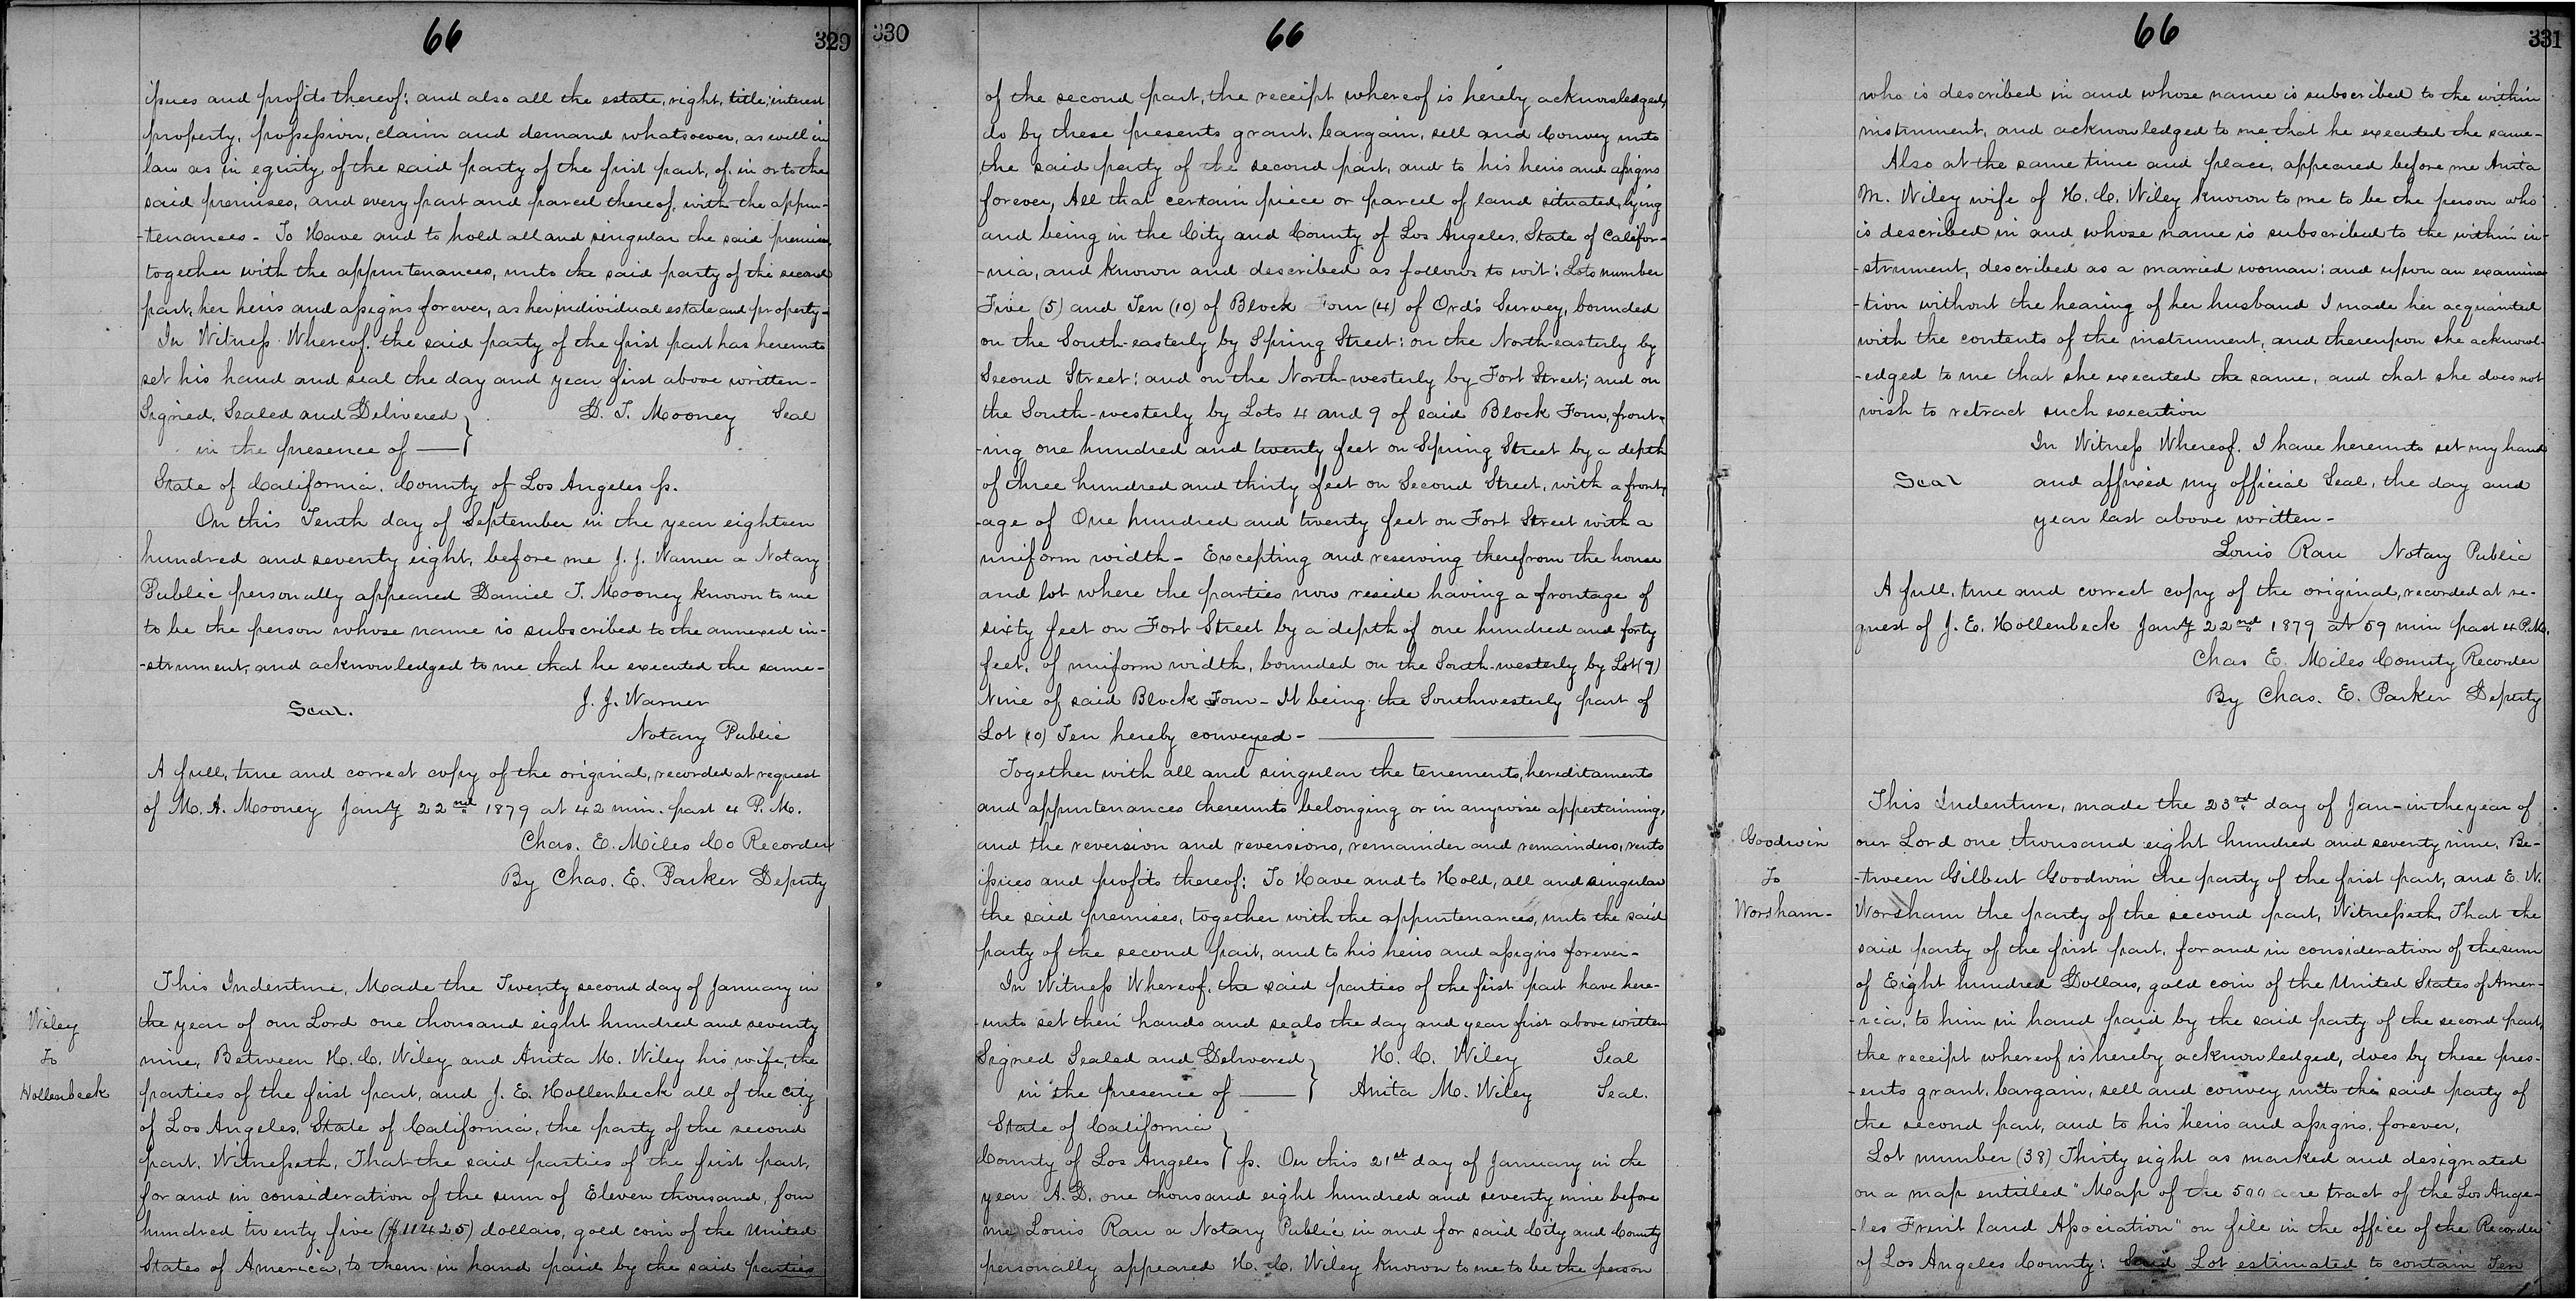 66
329
issues and profits thereof; and also all the estate, right, title, interest
property, possession, claim and demand whatsoever, as well in
law as in equity, of the said party of the first part, of, in or to the
said premises, and every part and parcel thereof, with the appur-
-tenances - To Have and to hold all and singular the said premises,
together with the appurtenances, unto the said party of the second
part, her heirs and assigns forever, as her individual estate and property -
In Witness Whereof, the said party of the first part has hereunto
set his hand and seal the day and year first above written -
Signed, Sealed and Delivered } D. T. Mooney Seal
in the presence of —
State of California, County of Los Angeles ss.
On this Tenth day of September in the year eighteen
hundred and seventy eight, before me J. J. Warner a Notary
Public personally appeared Daniel T. Mooney known to me
to be the person whose name is subscribed to the annexed in-
-strument, and acknowledged to me that he executed the same -
Seal. J. J. Warner
Notary Public
A full, true and correct copy of the original, recorded at request
of M. A. Mooney Jany 22nd 1879 at 42 min. past 4 P. M.
Chas. E. Miles Co Recorder
By Chas. E. Parker Deputy
Wiley
To
Hollenbeck
This Indenture, Made the Twenty second day of January in
the year of our Lord one thousand eight hundred and seventy
nine, Between H. C. Wiley and Anita M. Wiley his wife, the
parties of the first part, and J. E. Hollenbeck all of the City
of Los Angeles, State of California, the party of the second
part, Witnesseth, That the said parties of the first part,
for and in consideration of the sum of Eleven thousand, four
hundred twenty five ($11425) dollars, gold coin of the United
States of America, to them in hand paid by the said parties
330
66
of the second part, the receipt whereof is hereby acknowledged,
do by these presents grant, bargain, sell and Convey unto
the said party of the second part, and to his heirs and assigns
forever, All that certain piece or parcel of land situated, lying
and being in the City and County of Los Angeles, State of Califor-
-nia, and known and described as follows to wit: Lots number
Five (5) and Ten (10) of Block Four (4) of Ord's Survey, bounded
on the South-easterly by Spring Street: on the North-easterly by
Second Street: and on the North-westerly by Fort Street; and on
the South-westerly by Lots 4 and 9 of said Block Four, front-
-ing one hundred and twenty feet on Spring Street by a depth
of three hundred and thirty feet on Second Street, with a front-
-age of One hundred and twenty feet on Fort Street with a
uniform width - Excepting and reserving therefrom the house
and lot where the parties now reside having a frontage of
sixty feet on Fort Street by a depth of one hundred and forty
feet, of uniform width, bounded on the South-westerly by Lot (9)
Nine of said Block Four - It being the Southwesterly part of
Lot (10) Ten hereby conveyed -
Together with all and singular the tenements, hereditaments
and appurtenances thereunto belonging or in anywise appertaining,
and the reversion and reversions, remainder and remainders, rents
issues and profits thereof: To Have and to Hold, all and singular
the said premises, together with the appurtenances, unto the said
party of the second part, and to his heirs and assigns forever -
In Witness Whereof, the said parties of the first part have here-
-unto set their hands and seals the day and year first above written
Signed Sealed and Delivered } H. C. Wiley Seal
in the presence of — } Anita M. Wiley Seal.
State of California
County of Los Angeles } ss. On this 21st day of January in the
year A. D. one thousand eight hundred and seventy nine before
me Louis Rau a Notary Public in and for said City and County
personally appeared H. C. Wiley known to me to be the person
66
331
who is described in and whose name is subscribed to the within
instrument, and acknowledged to me that he executed the same -
Also at the same time and place, appeared before me Anita
M. Wiley wife of H. C. Wiley known to me to be the person who
is described in and whose name is subscribed to the within in-
-strument, described as a married woman: and upon an examina-
-tion without the hearing of her husband I made her acquainted
with the contents of the instrument, and thereupon she acknowl-
-edged to me that she executed the same, and that she does not
wish to retract such execution
In Witness Whereof, I have hereunto set my hand
Seal and affixed my official Seal, the day and
year last above written -
Louis Rau Notary Public
A full, true and correct copy of the original, recorded at re-
quest of J. E. Hollenbeck Jany 22nd 1879 at 59 min past 4 P.M.
Chas E. Miles County Recorder
By Chas. E. Parker Deputy
Goodwin
To
Worsham -
This Indenture, made the 23rd day of Jan - in the year of
our Lord one thousand eight hundred and seventy nine, Be-
-tween Gilbert Goodwin the party of the first part, and E. W.
Worsham the party of the second part, Witnesseth, That the
said party of the first part, for and in consideration of the sum
of Eight hundred Dollars, gold coin of the United States of Amer-
-ica, to him in hand paid by the said party of the second part,
the receipt whereof is hereby acknowledged, does by these pres-
-ents grant, bargain, sell and convey unto the said party of
the second part, and to his heirs and assigns, forever,
Lot number (38) Thirty eight as marked and designated
on a map entitled "Map of the 500 acre tract of the Los Ange-
-les Fruit land Association" on file in the office of the Recorder
of Los Angeles County: Said Lot estimated to contain Ten